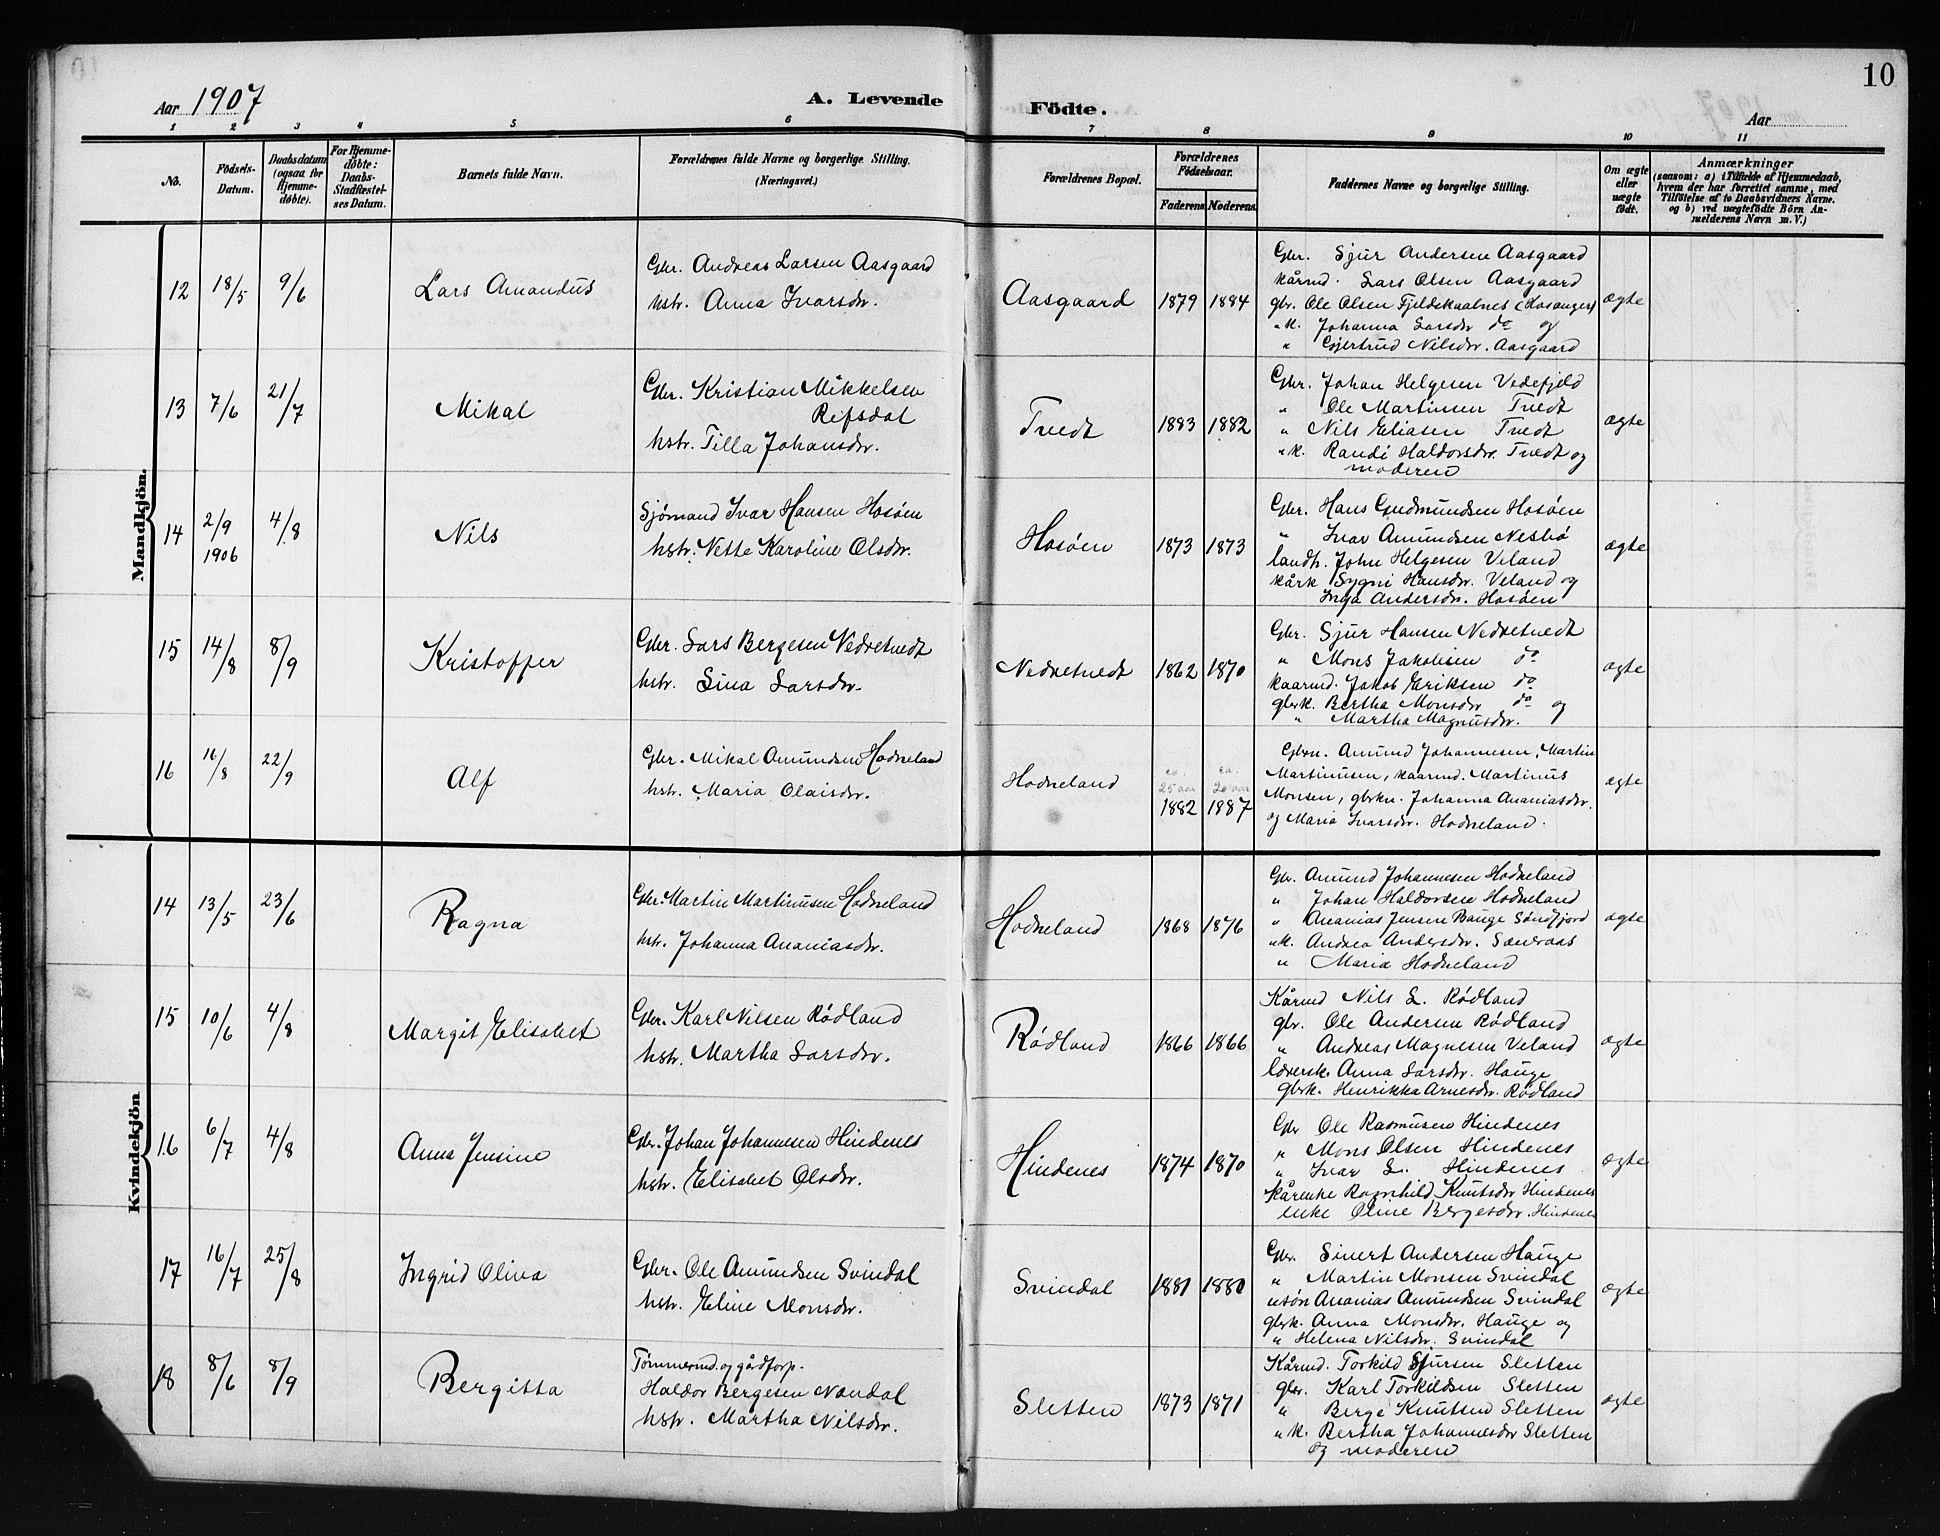 10
Aar 1907
A. Levende Födte.
Aar
1 2 3 4 5 6 7 8 9 10 11
No.
Födsels-
Datum.
Daabsdatum
(ogsaa for
Hjemme-
døbte).
For Hjemme-
døbte:
Daabs-
Stadfæstel-
ses Datum.
Barnets fulde Navn.
Forældrenes fulde Navne og borgerlige Stilling.
(Næringsvei.)
Forældrenes Bopæl.
Forældrenes
Födselsaar.
Faderens Moderens
Faddernes Navne og borgerlige Stilling.
Om ægte
eller
uægte
födt.
Anmærkninger
(saasom: a) i Tilfælde af Hjemmedaab,
hvem der har forrettet samme, med
Tilföielse af to Daabsvidners Navne.
og b) ved uægtefödte Börn An-
melderens Navn m. V.)
Mandkjön.
12 18/5 9/6 Lars Amandus
Gbr. Andreas Larsen Aasgaard
hstr. Anna Ivarsdr.
Aasgaard 1879 1884
Gbr. Sjur Andersen Aasgaard
kårmd. Lars Olsen Aasgaard
gbr. Ole Olsen Fjeldskaalnes (Hosanger)
"k. Johanna Larsdr do og
" Gjertrud Nilsdr. Aasgaard
ægte
13 7/6 21/7 Mikal
Gbr. Kristian Mikkelsen
Refsdal
hstr. Tilla Johansdr.
Tvedt 1883 1882
Gbr. Johan Helgesen Vedefjeld
" Ole Martinsen Tvedt
" Nils Eliasen Tvedt
"k. Randi Haldorsdr. Tvedt og
moderen
ægte
14 2/9 1906 4/8 Nils
Sjømand Ivar Hansen Hosöen
hstr. Nette Karoline Olsdr.
Hosöen 1873 1873
Gbr. Hans Gudmundsen Hosöen
" Ivar Amundsen Nesbö
landh. John Helgesen Veland
kårk Sygni Hansdr. Veland og
Inga Andersdr. Hosöen
ægte
15 14/8 8/9 Kristoffer
Gbr. Lars Bergesen Nedretvedt
hstr. Sina Larsdr.
Nedretvedt 1862 1870
Gbr. Sjur Hansen Nedretvedt
" Mons Jakobsen do
kaarmd. Jakob Eriksen do
gbrk. Bertha Monsdr do og
" Martha Magnusdr.
ægte
16 16/8 22/9 Alf
Gbr. Mikal Amundsen Hodneland
hstr. Maria Olaisdr.
Hodneland
ca. 25 aar ca. 20 aar
1882 1887
Gbrn. Amund Johannesen, Martin
Martinusen, kaarmd. Martinus
Monsen, gbrkn. Johanna Ananiasdr.
og Maria Ivarsdr. Hodneland.
ægte
Kvindekjön
14 13/5 23/6 Ragna
Gbr. Martin Martinusen Hodneland
hstr. Johanna Ananiasdr.
Hodneland 1868 1876
Gbr. Amund Johannesen Hodneland
" Johan Haldorsen Hodneland
" Ananias Jensen Bauge Söndfjord
"k. Andrea Andersdr. Sæveraas
" Maria Hodneland
ægte
15 10/6 4/8 Margit Elisabet
Gbr. Karl Nilsen Rödland
hstr. Martha Larsdr.
Rödland 1866 1866
Kårmd Nils L. Rödland
gbr. Ole Andersen Rödland
" Andreas Magnesen Veland
lærersk. Anna Larsdr. Hauge
gbrk. Henrikka Arnesdr. Rödland
ægte
16 6/7 4/8 Anna Jensine
Gbr. Johan Johannesen Hindenes
hstr. Elisabet Olsdr.
Hindenes 1874 1870
Gbr Ole Rasmusen Hindenes
" Mons Olsen Hindenes
" Ivar L. Hindenes
kårenke Ragnhild Knutsdr Hindenes
enke Oline Bergesdr. Hindenes
ægte
17 16/7 25/8 Ingrid Oliva
Gbr. Ole Amundsen Svindal
hstr. Eline Monsdr.
Svindal 1881 1880
Gbr. Sivert Andersen Hauge
" Martin Monsen Svindal
Ananias Amundsen Svindal
gbrk. Anna Monsdr. Hauge og
" Helena Nilsdr. Svindal
ægte
18 8/6 8/9 Bergitta
Tömmermd. og gårdforp.
Haldor Bergesen Nandal
hstr. Martha Nilsdr.
Sletten 1873 1871
Kårmd. Torkild Sjursen Sletten
gbr. Karl Torkildsen Sletten
" Berge Knutsen Sletten
"k. Bertha Johannesdr Sletten
og moderen
ægte